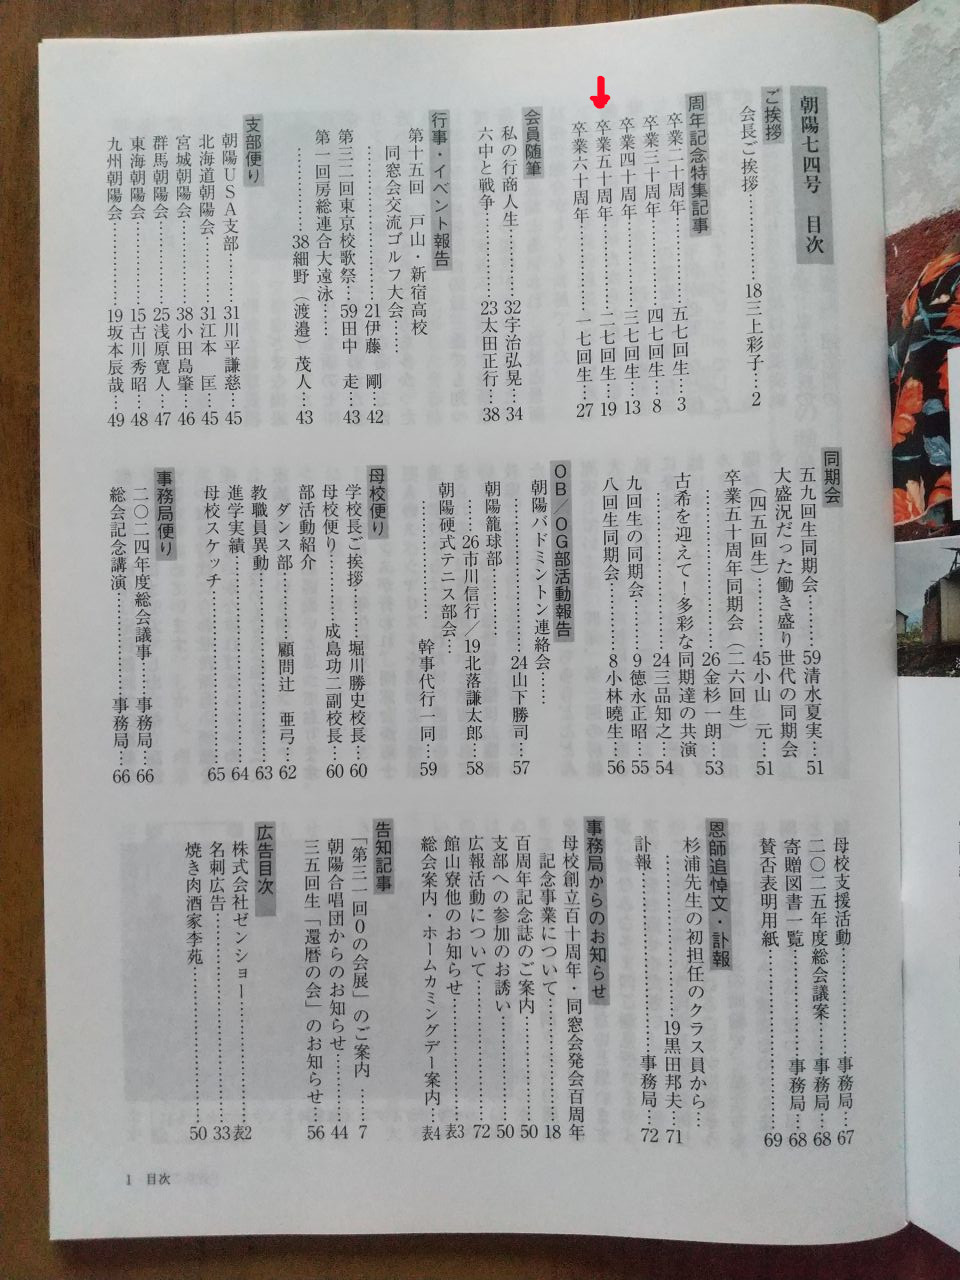 朝陽七四号　目次
ご挨拶
会長ご挨拶……………18三上彩子…2
周年記念特集記事
卒業二十周年……………五七回生…3
卒業三十周年……………四七回生…8
卒業四十周年……………三七回生…13
卒業五十周年……………二七回生…19
卒業六十周年……………一七回生…27
会員随筆
私の行商人生……………32宇治弘晃…34
六中と戦争……………23太田正行…38
行事・イベント報告
第十五回　戸山・新宿高校
同窓会交流ゴルフ大会……
……………………21伊藤　剛…42
第三二回東京校歌祭…59田中　走…43
第一回房総連合大遠泳……
……………38細野（渡邉）茂人…43
支部便り
朝陽USA支部………31川平謙慈…45
北海道朝陽会…………31江本　匡…45
宮城朝陽会……………38小田島肇…46
群馬朝陽会……………25浅原寛人…47
東海朝陽会……………15古川秀昭…48
九州朝陽会……………19坂本辰哉…49
同期会
五九回生同期会………59清水夏実…51
大盛況だった働き盛り世代の同期会
（四五回生）…………45小山　元…51
卒業五十周年同期会（二六回生）
……………………26金杉一朗…53
古希を迎えて！多彩な同期達の共演
……………………24三品知之…54
九回生の同期会…………9徳永正昭…55
八回生同期会……………8小林曉生…56
OB／OG部活動報告
朝陽バドミントン連絡会……
……………………24山下勝司…57
朝陽籠球部……………
……26市川信行／19北落謙太郎…58
朝陽硬式テニス部会…
……………　幹事代行一同…59
母校便り
学校長ご挨拶………堀川勝史校長…60
母校便り…………成島功二副校長…60
部活動紹介
ダンス部……………顧問辻　亜弓…62
教職員異動……………………………63
進学実績………………………………64
母校スケッチ…………………………65
事務局便り
二〇二四年度総会議事………事務局…66
総会記念講演……………　事務局…66
母校支援活動……………　事務局…67
二〇二五年度総会議案………事務局…68
寄贈図書一覧……………　事務局…68
賛否表明用紙…………………………69
恩師追悼文・訃報
杉浦先生の初担任のクラス員から…
……………………19黒田邦夫…71
訃報……………………　事務局…72
事務局からのお知らせ
母校創立百十周年・同窓会発会百周年
記念事業について……………………18
百周年記念誌のご案内………………50
支部への参加のお誘い………………50
広報活動について……………………72
館山寮他のお知らせ…………………表3
総会案内・ホームカミングデー案内…表4
告知記事
「第三一回0の会展」のご案内　……7
朝陽合唱団からのお知らせ…………44
三五回生「還暦の会」のお知らせ…56
広告目次
株式会社ゼンショー…………………表2
名刺広告………………………………33
焼き肉酒家李苑………………………50
1　目次